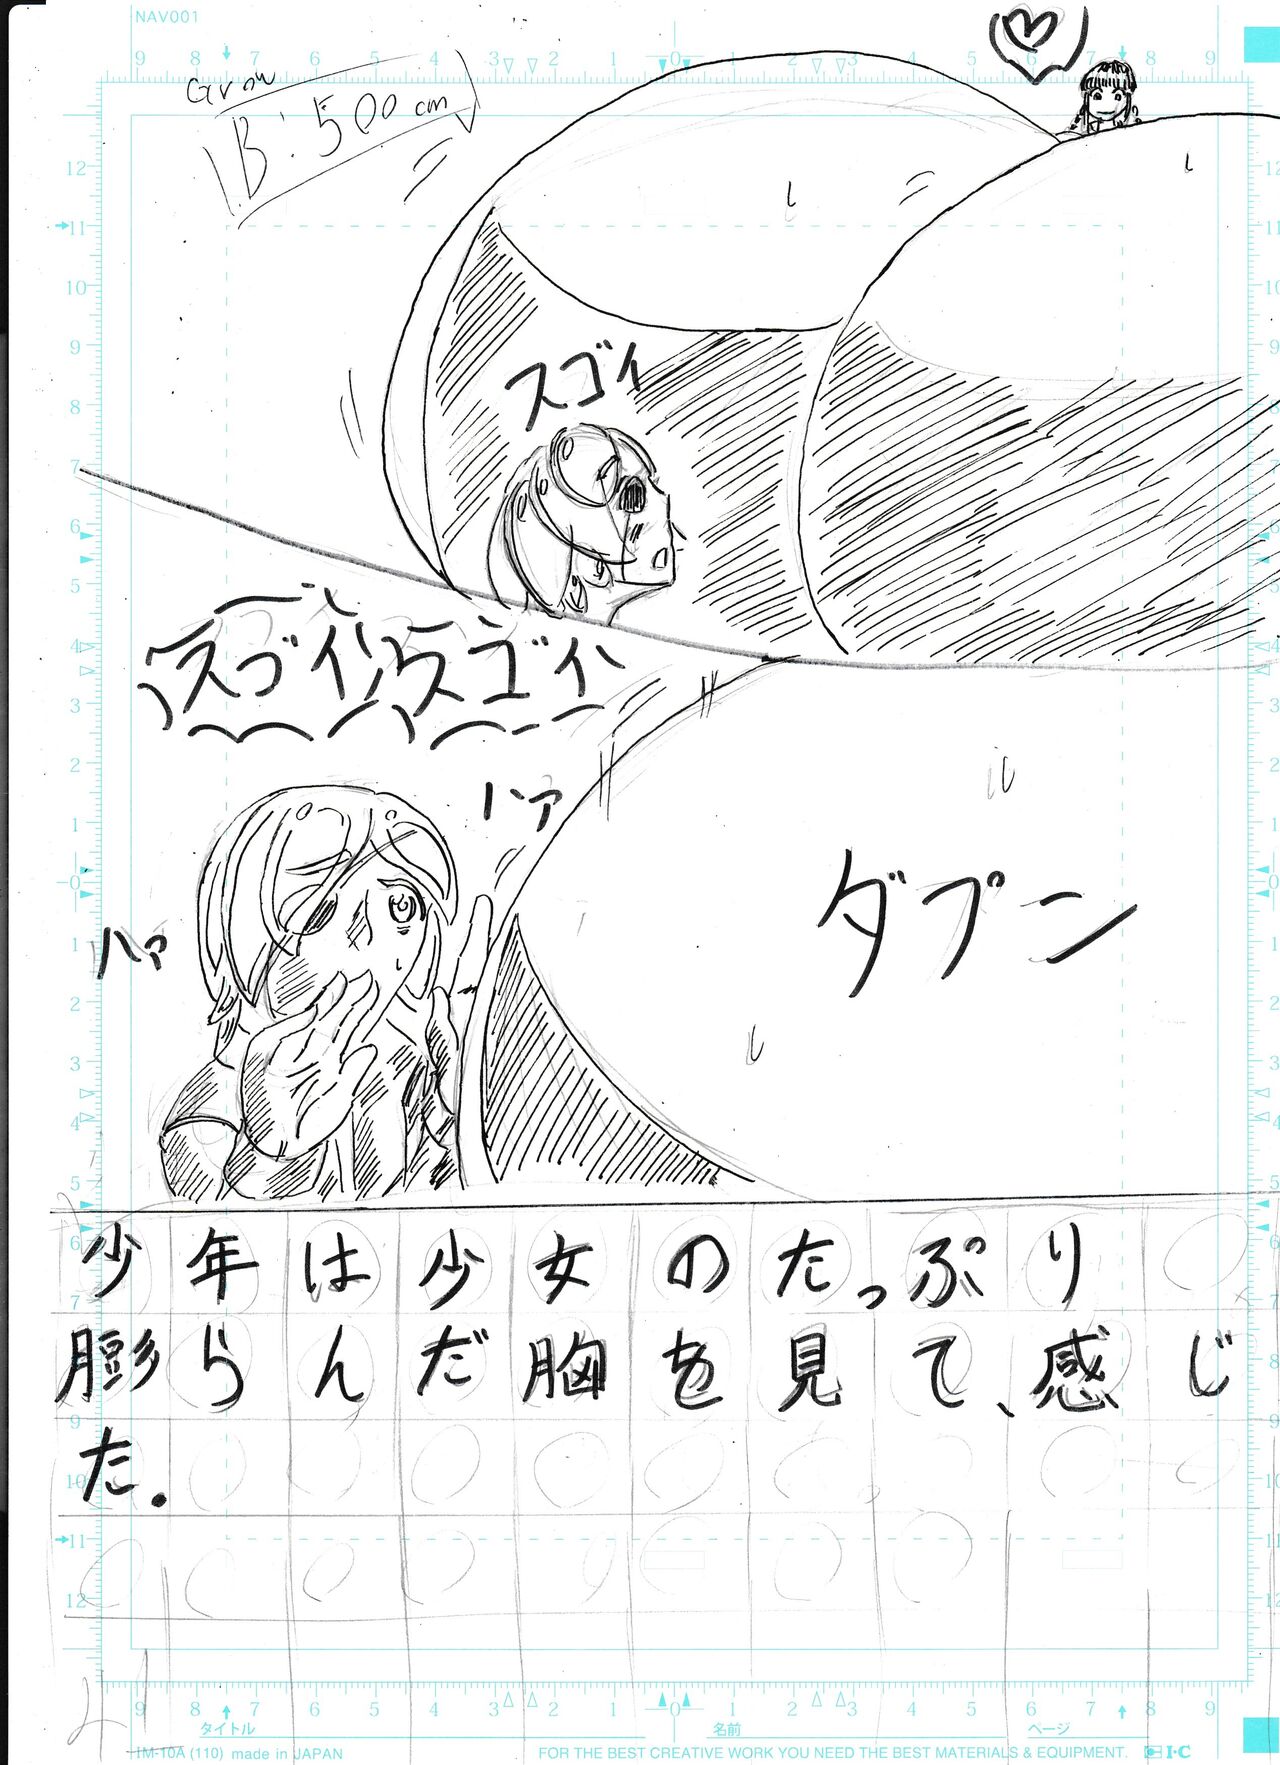 NAV001
Grow
B:500cm
スゴイ
スゴイスゴイ
ハァ
ハァ
ダプン
少年は少女のたっぷり
膨らんだ胸を見て、感じ
た.
タイトル 名前 ページ
IM-10A (110) made in JAPAN FOR THE BEST CREATIVE WORK YOU NEED THE BEST MATERIALS & EQUIPMENT. I·C